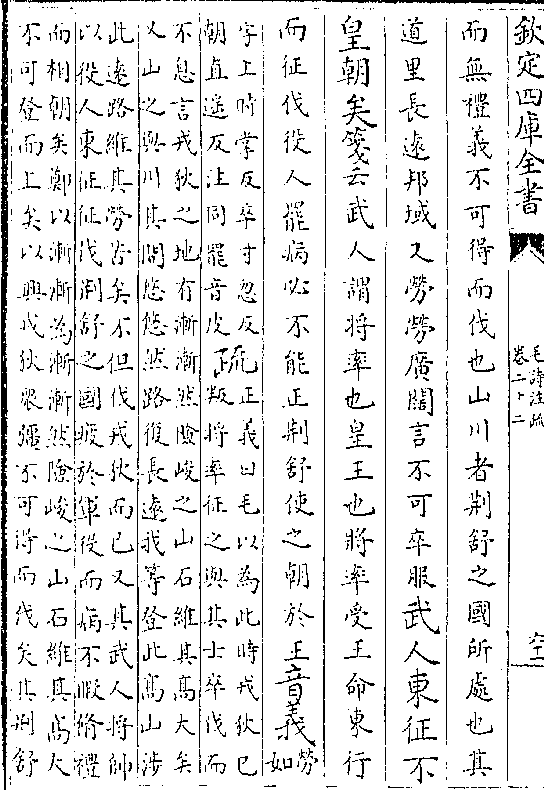 欽定四庫全書
毛詩注疏
卷二十二
六十二
而無禮義不可得而伐也山川者荆舒之國所處也其
道里長逺邦域又勞勞廣闊言不可卒服武人東征不
皇朝矣箋云武人謂將率也皇王也將率受王命東行
而征伐役人罷病必不能正荆舒使之朝於王音義勞如
字上時掌反卒寸忽反
朝直遥反注同罷音皮疏正義曰毛以為此時戎狄已
叛將率征之與其士卒伐而
不息言戎狄之地有漸漸然險峻之山石維其髙大矣
又山之與川其間悠悠然路復長逺我等登此髙山涉
此逺路維其勞苦矣不但伐戎狄而已又其武人將帥
以役人東征征伐荆舒之國疲於軍役而病不暇脩禮
而相朝矣鄭以漸漸為漸漸然險峻之山石維其髙大
不可登而上矣以興戎狄衆彊不可得而伐矣其荆舒